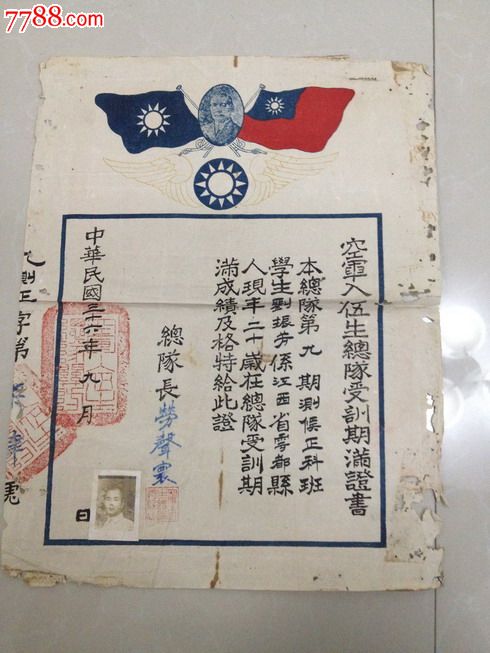 7788.com
中國收藏熱線
空軍入伍生總隊受訓期滿證書
本總隊第九期測候正科班
學生劉振芳係江西省雩都縣
人現年二十歲在總隊受訓期
滿成績及格特給此證
總隊長 勞聲寰
中華民國三十六年九月 日
測正字第 號